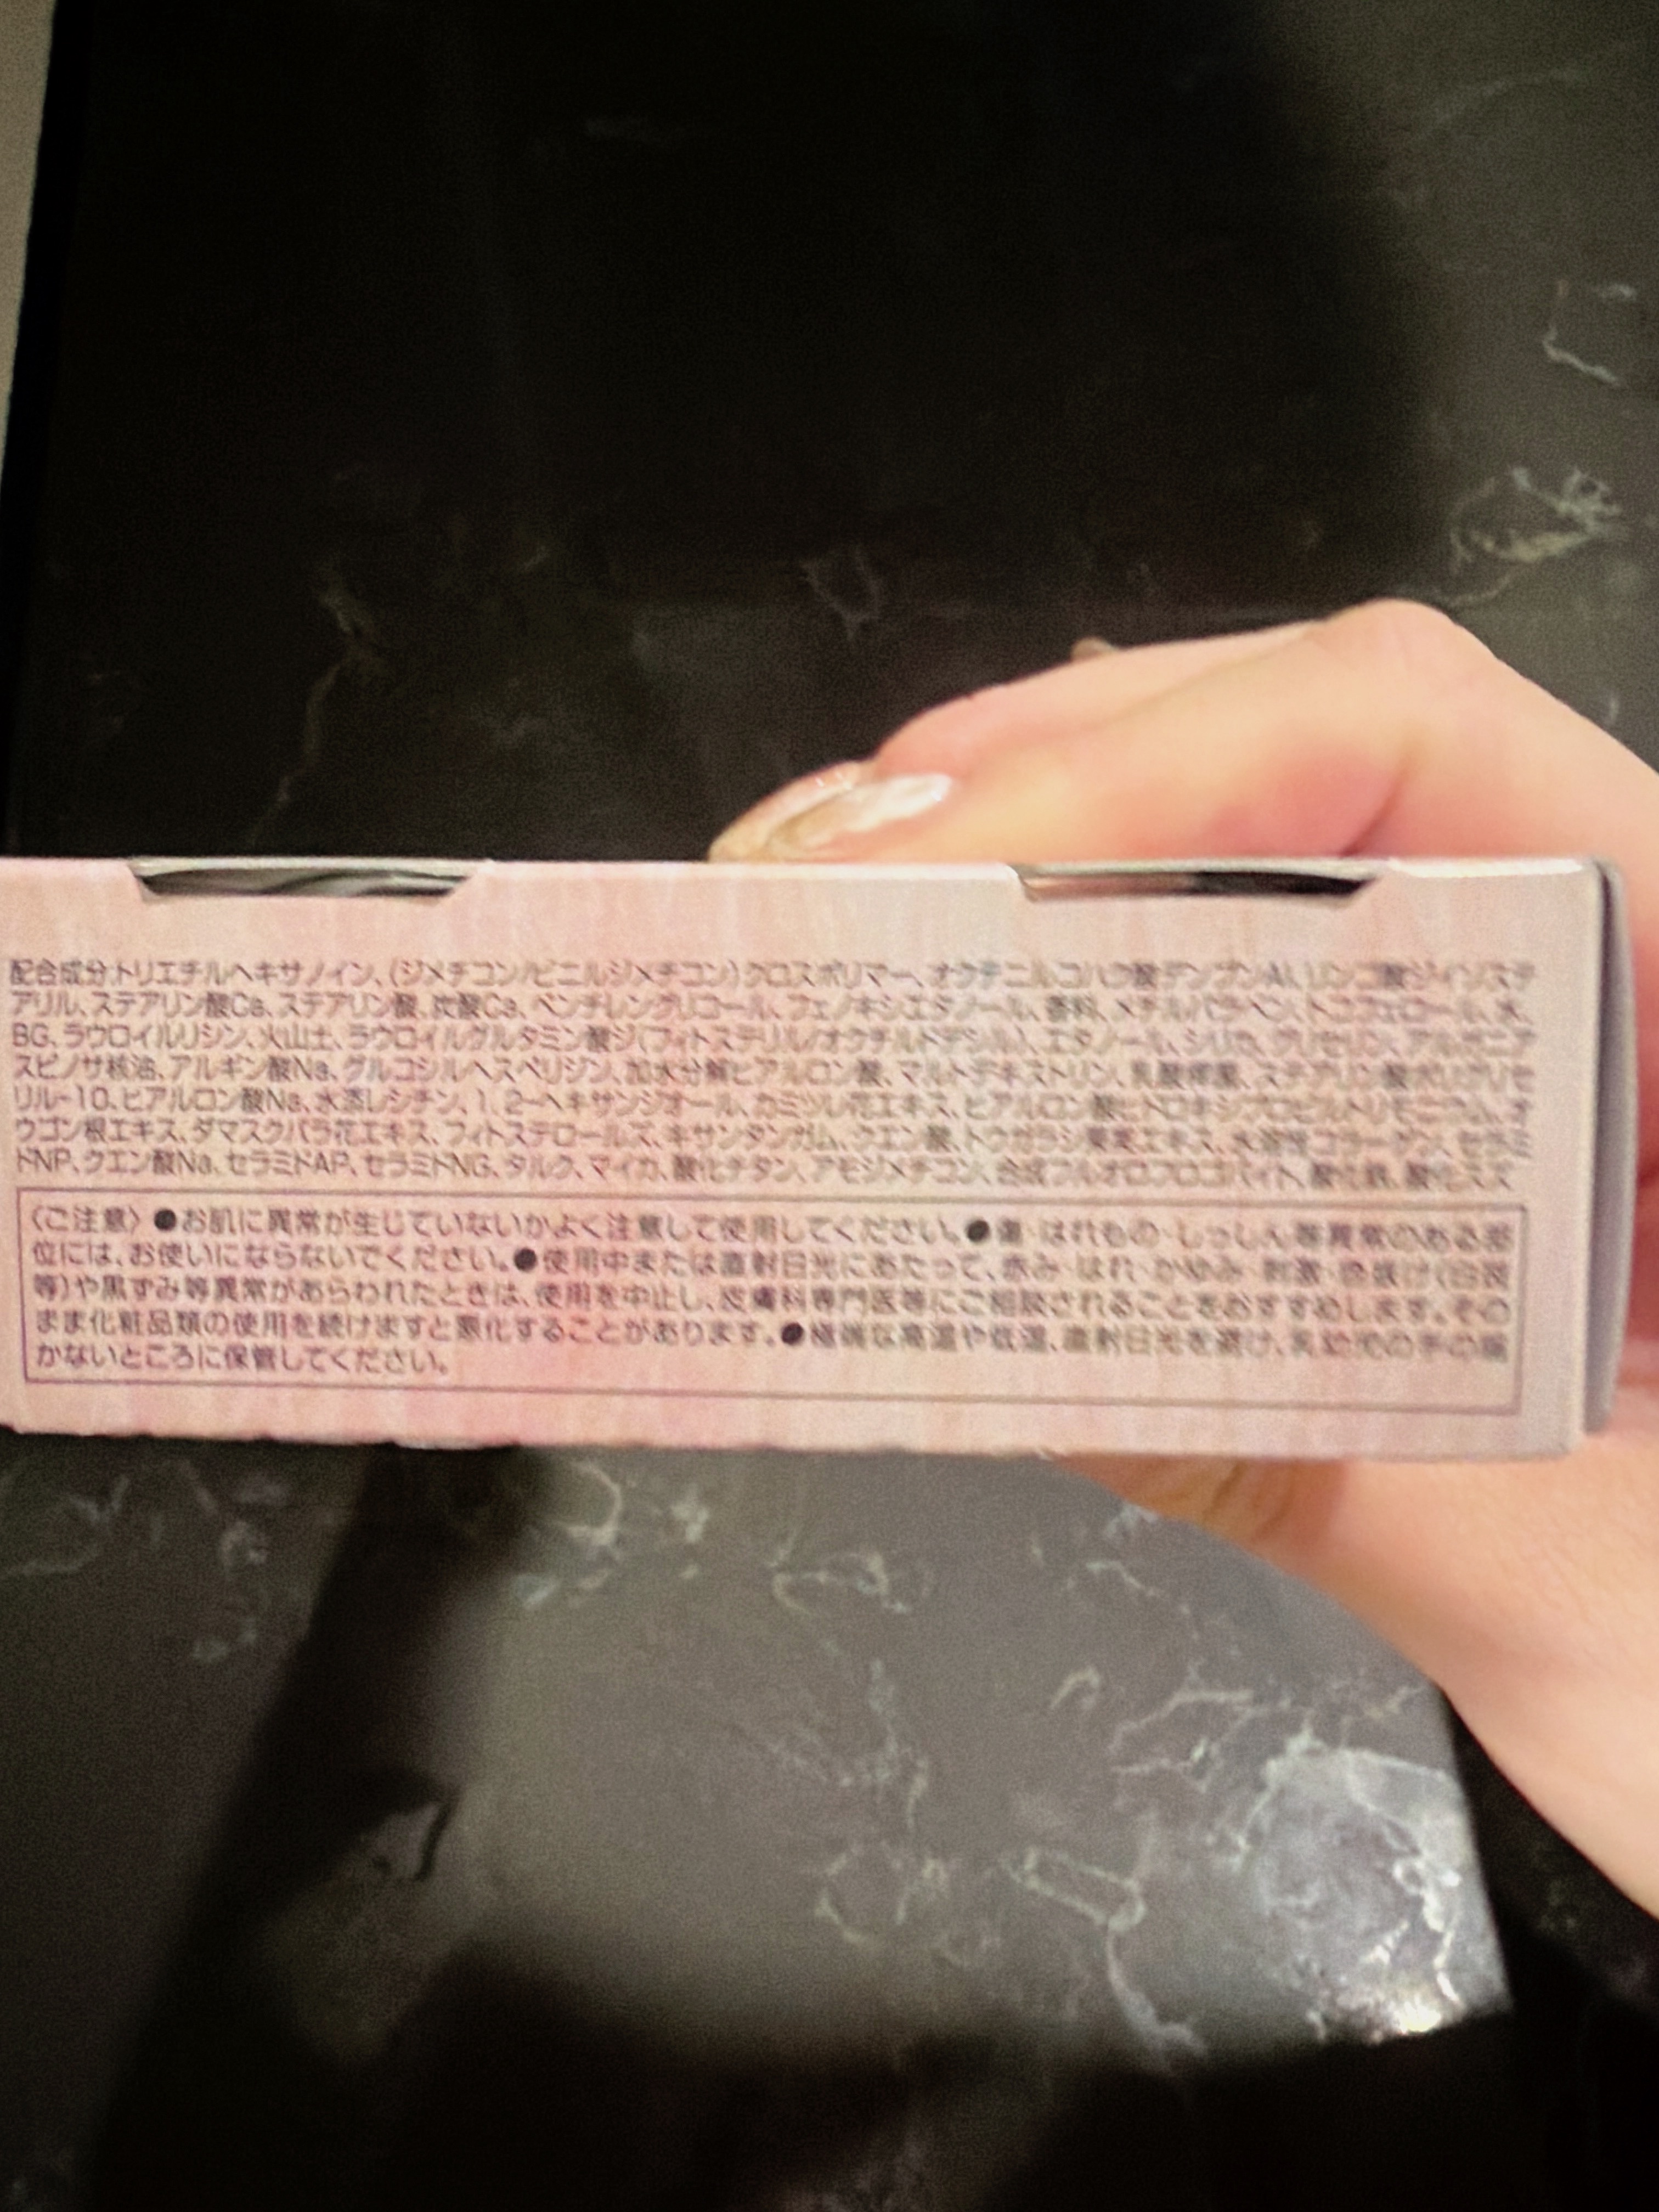 配合成分:トリエチルヘキサノイン、(ジメチコン/ビニルジメチコン)クロスポリマー、オクテニルコハク酸デンプンAl、リンゴ酸ジイソステ
アリル、ステアリン酸Ca、ステアリン酸、炭酸Ca、ペンチレングリコール、フェノキシエタノール、香料、メチルパラベン、トコフェロール、水、
BG、ラウロイルリシン、火山土、ラウロイルグルタミン酸ジ(フィトステリル/オクチルドデシル)、エタノール、シリカ、グリセリン、アルガニア
スピノサ核油、アルギン酸Na、グルコシルヘスペリジン、加水分解ヒアルロン酸、マルトデキストリン、乳酸桿菌、ステアリン酸ポリグリセ
リル-10、ヒアルロン酸Na、水添レシチン、1,2-ヘキサンジオール、カミツレ花エキス、ヒアルロン酸ヒドロキシプロピルトリモニウム、オ
ウゴン根エキス、ダマスクバラ花エキス、フィトステロールズ、キサンタンガム、クエン酸、トウガラシ果実エキス、水溶性コラーゲン、セラミ
ドNP、クエン酸Na、セラミドAP、セラミドNG、タルク、マイカ、酸化チタン、アモジメチコン、合成フルオロフロゴパイト、酸化鉄、酸化スズ
〈ご注意〉●お肌に異常が生じていないかよく注意して使用してください。●傷・はれもの・しっしん等異常のある部
位には、お使いにならないでください。●使用中または直射日光にあたって、赤み・はれ・かゆみ・刺激・色抜け(白斑
等)や黒ずみ等異常があらわれたときは、使用を中止し、皮膚科専門医等にご相談されることをおすすめします。その
まま化粧品類の使用を続けますと悪化することがあります。●極端な高温や低温、直射日光を避け、乳幼児の手の届
かないところに保管してください。